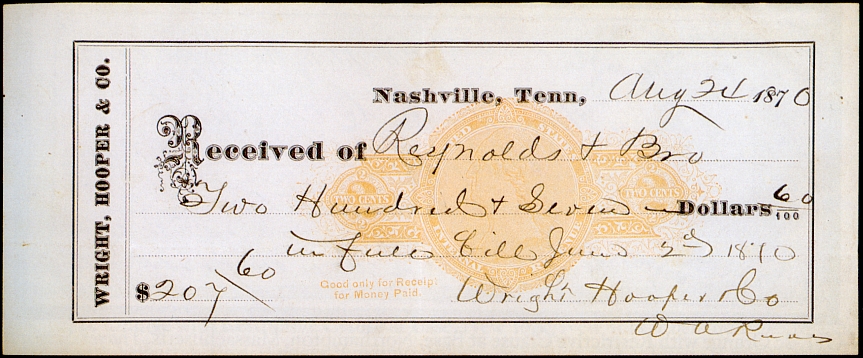 WRIGHT, HOOPER & CO.
Nashville, Tenn, Aug 24 1870
Received of Reynolds & Bro
Two Hundred & Seven Dollars 60/100
in full bill June 2d 1870
$207 60/
Good only for Receipt
for Money Paid.
TWO CENTS
TWO CENTS
UNITED STATES
INTERNAL REVENUE
Wright Hooper & Co
W A